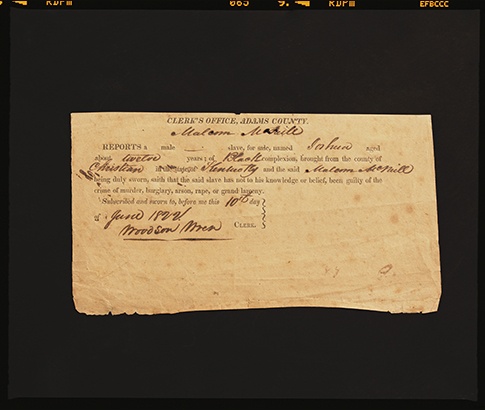 RDPM
085
9.
RDPM
EFBCCC
CLERK'S OFFICE, ADAMS COUNTY.
Malcom McNeill
REPORTS a male slave, for sale, named Joshua aged
about twelve years; of Black complexion, brought from the county of
Christian in the Kentucky and the said Malcom McNeill
being duly sworn, saith that the said slave has not to his knowledge or belief, been guilty of the
crime of murder, burglary, arson, rape, or grand larceny.
Subscribed and sworn to, before me this 10th day
of June 1822
Woodson Wren CLERK.